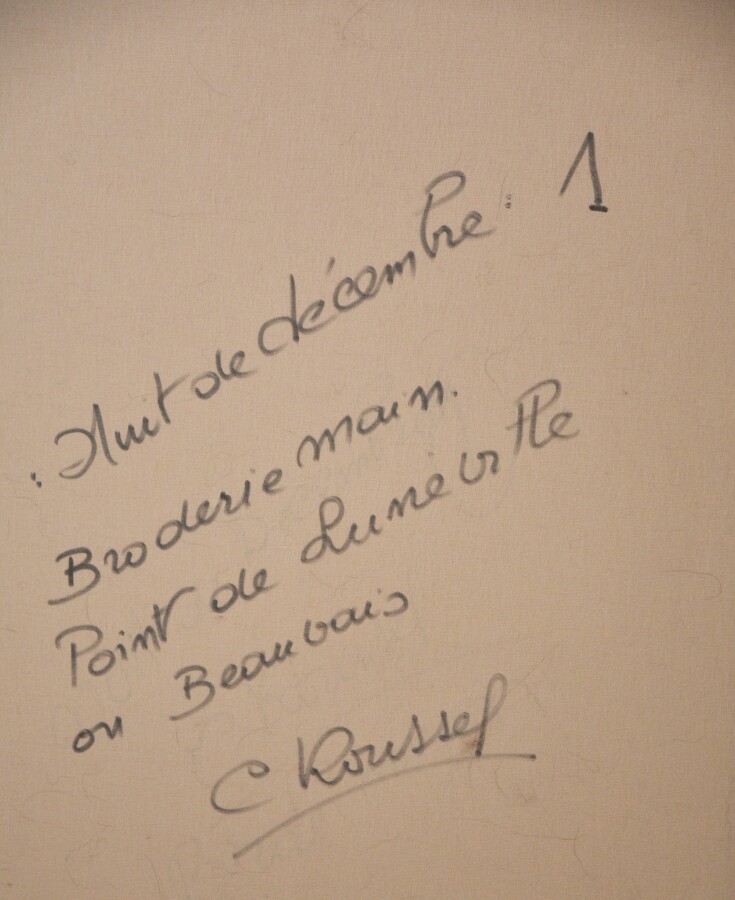 Nuit de décembre 1
Broderie main.
Point de Lunéville
ou Beauvais
C Roussel